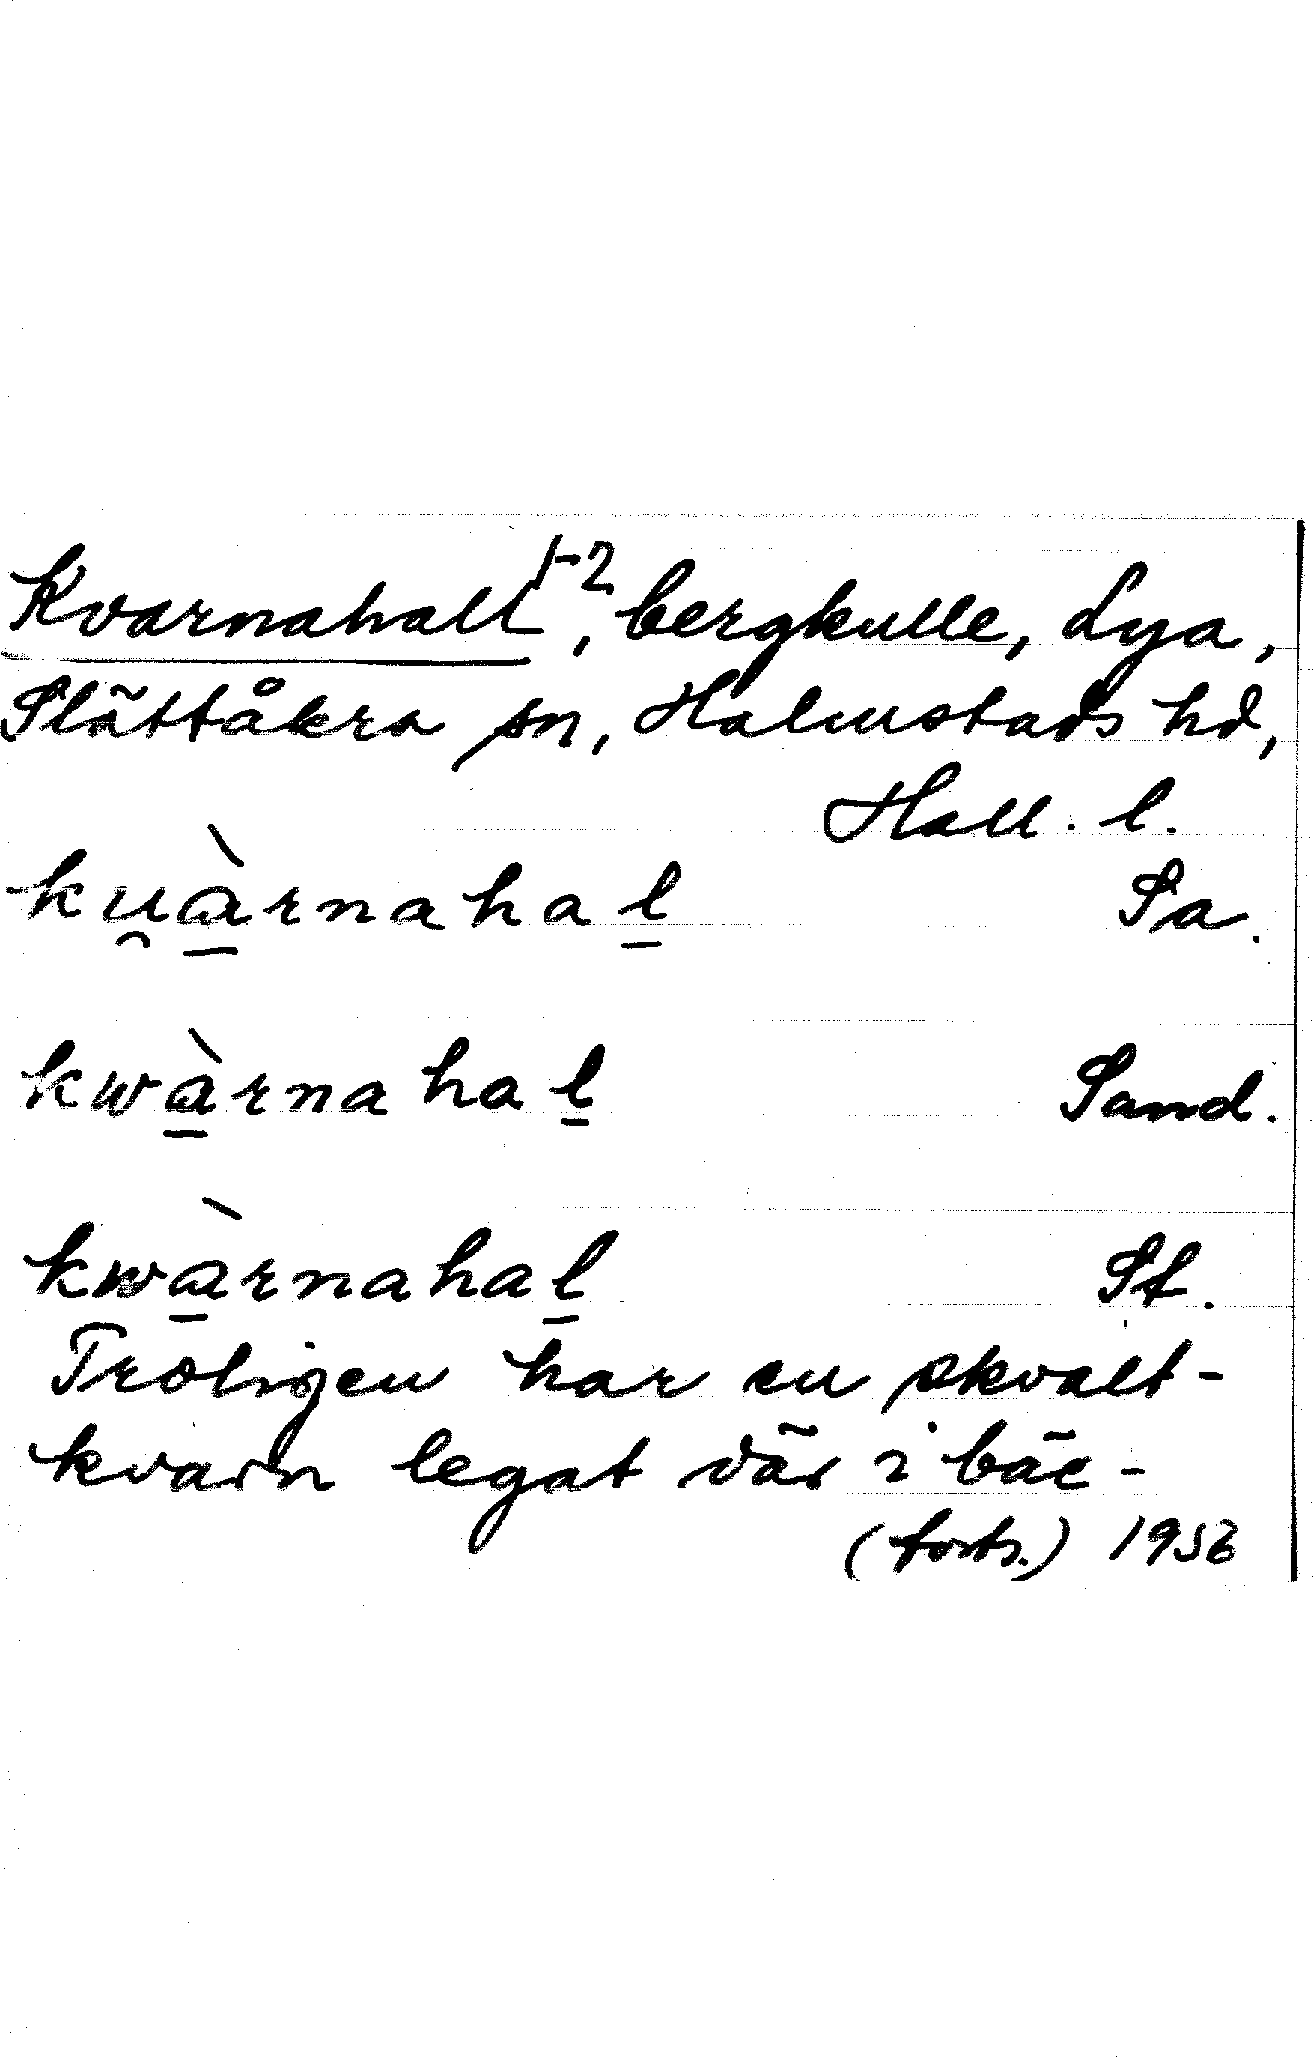 Kvarnahall 1-2, bergkulle, Lya,
Slättåkra sn, Halmstads hd,
Hall. l.
ku̯à̱rnahaḻ Sa.
kwà̱rnahaḻ Sand.
kwà̱rnahaḻ St.
Troligen har en skvalt-
kvarn legat där i bäc-
(forts.) 1956